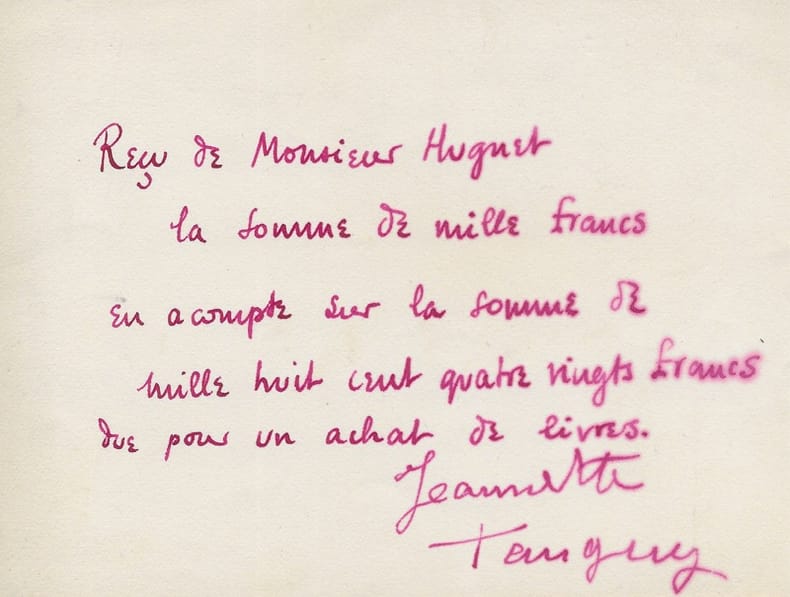 Reçu de Monsieur Huguet
la somme de mille francs
en acompte sur la somme de
mille huit cent quatre vingts francs
due pour un achat de livres.
Jeannette
Tanguy